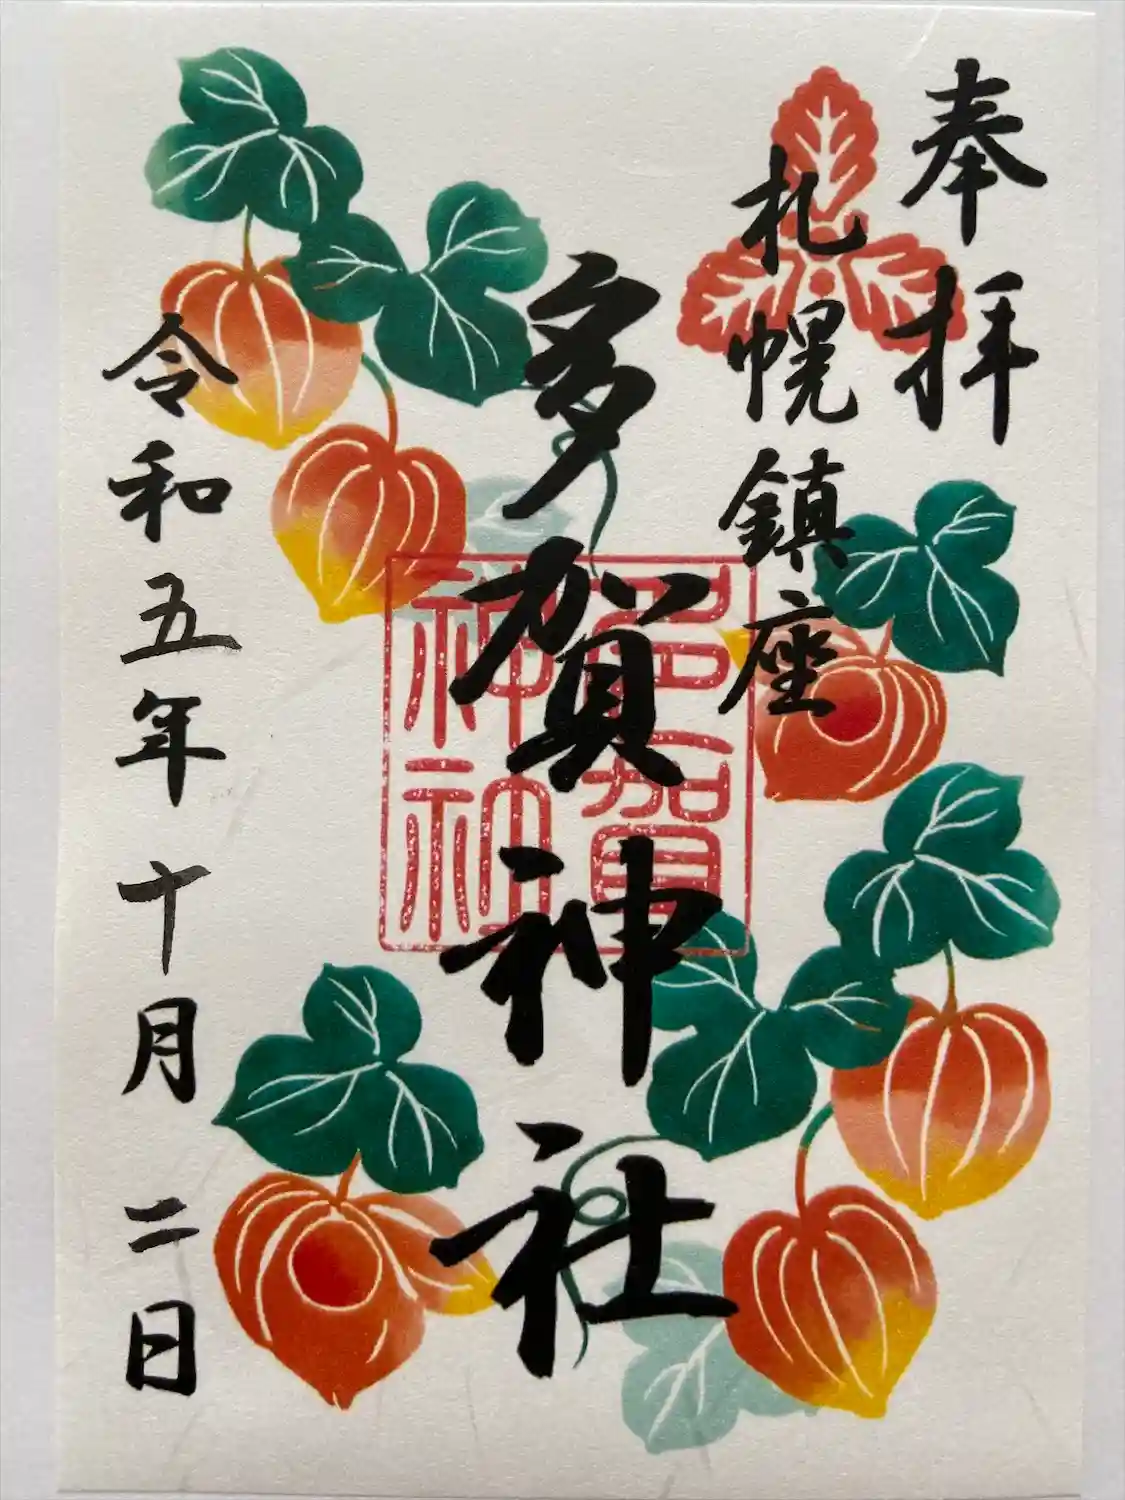 奉拝
札幌鎮座
多賀神社
多賀神社
令和五年十月二日